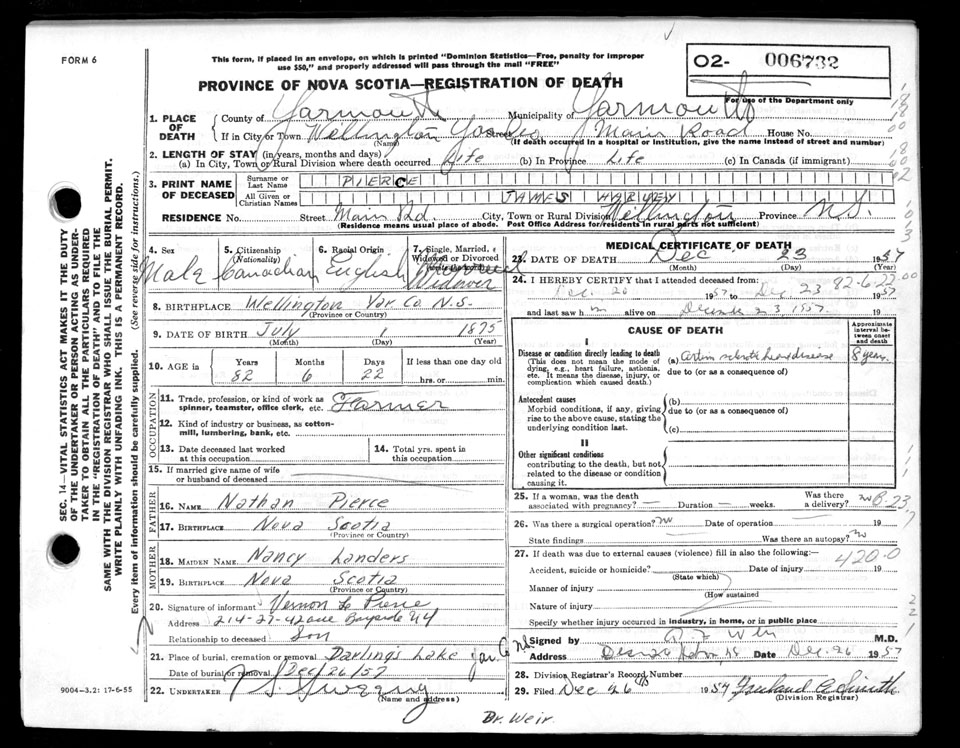 FORM 6
This form, if placed in an envelope, on which is printed "Dominion Statistics—Free, penalty for improper
use $50," and properly addressed will pass through the mail "FREE"
PROVINCE OF NOVA SCOTIA—REGISTRATION OF DEATH
O2- 006732
For use of the Department only
1. PLACE OF DEATH
County of Yarmouth Municipality of Yarmouth
If in City or Town Wellington Street Main Road House No.
(Name) (If death occurred in a hospital or institution, give the name instead of street and number)
2. LENGTH OF STAY (in years, months and days)
(a) In City, Town or Rural Division where death occurred Life (b) In Province Life (c) In Canada (if immigrant)
3. PRINT NAME OF DECEASED
Surname or Last Name PIERCE
All Given or Christian Names JAMES HARVEY
RESIDENCE No. Street Main Rd. City, Town or Rural Division Wellington Province N.S.
(Residence means usual place of abode. Post Office Address for residents in rural parts not sufficient)
4. Sex 5. Citizenship (Nationality) 6. Racial Origin 7. Single, Married, Widowed or Divorced
Male Canadian English Widower
8. BIRTHPLACE Wellington Yar. Co N.S.
(Province or Country)
9. DATE OF BIRTH July 1 1875
(Month) (Day) (Year)
10. AGE in Years Months Days If less than one day old
82 6 22 hrs. or min.
OCCUPATION
11. Trade, profession, or kind of work as
spinner, teamster, office clerk, etc. Farmer
12. Kind of industry or business, as cotton-
mill, lumbering, bank, etc.
13. Date deceased last worked
at this occupation
14. Total yrs. spent in
this occupation
15. If married give name of wife
or husband of deceased
FATHER
16. NAME Nathan Pierce
17. BIRTHPLACE Nova Scotia
(Province or Country)
MOTHER
18. MAIDEN NAME Nancy Landers
19. BIRTHPLACE Nova Scotia
(Province or Country)
20. Signature of informant Vernon L Pierce
Address 214-27-42 ave Bayside
Relationship to deceased Son
21. Place of burial, cremation or removal Darling's Lake Yar. Co N.S.
Date of burial or removal Dec/26/57
22. UNDERTAKER
(Name and address)
MEDICAL CERTIFICATE OF DEATH
23. DATE OF DEATH Dec 23 1957
(Month) (Day) (Year)
24. I HEREBY CERTIFY that I attended deceased from:
Dec. 20 1957 to Dec 23 1957
82-6-22.00
and last saw h m alive on December 23 1957. 19
CAUSE OF DEATH
Approximate interval between onset and death
I
Disease or condition directly leading to death
(This does not mean the mode of
dying, e.g., heart failure, asthenia,
etc. It means the disease, injury, or
complication which caused death.)
(a) heart disease 8 years
due to (or as a consequence of)
Antecedent causes
Morbid conditions, if any, giving
rise to the above cause, stating the
underlying condition last.
(b)
due to (or as a consequence of)
(c)
II
Other significant conditions
contributing to the death, but not
related to the disease or condition
causing it.
25. If a woman, was the death
associated with pregnancy? — Duration — weeks. Was there
a delivery? no
B-23
26. Was there a surgical operation? no Date of operation — 19
State findings Was there an autopsy? no
27. If death was due to external causes (violence) fill in also the following:—
420.0
Accident, suicide or homicide? Date of injury 19
(State which)
Manner of injury
(How sustained
Nature of injury
Specify whether injury occurred in industry, in home, or in public place
Signed by Weir M.D.
Address Date Dec. 26 1957
28. Division Registrar's Record Number
29. Filed Dec 26th 1957
(Division Registrar)
SEC. 14—VITAL STATISTICS ACT MAKES IT THE DUTY
OF THE UNDERTAKER OR PERSON ACTING AS UNDER-
TAKER TO OBTAIN ALL THE PARTICULARS REQUIRED
IN THE "REGISTRATION OF DEATH" AND TO FILE THE
SAME WITH THE DIVISION REGISTRAR WHO SHALL ISSUE THE BURIAL PERMIT.
WRITE PLAINLY WITH UNFADING INK. THIS IS A PERMANENT RECORD.
Every item of information should be carefully supplied. (See reverse side for instructions.)
9004—3.2: 17-6-55
Dr. Weir